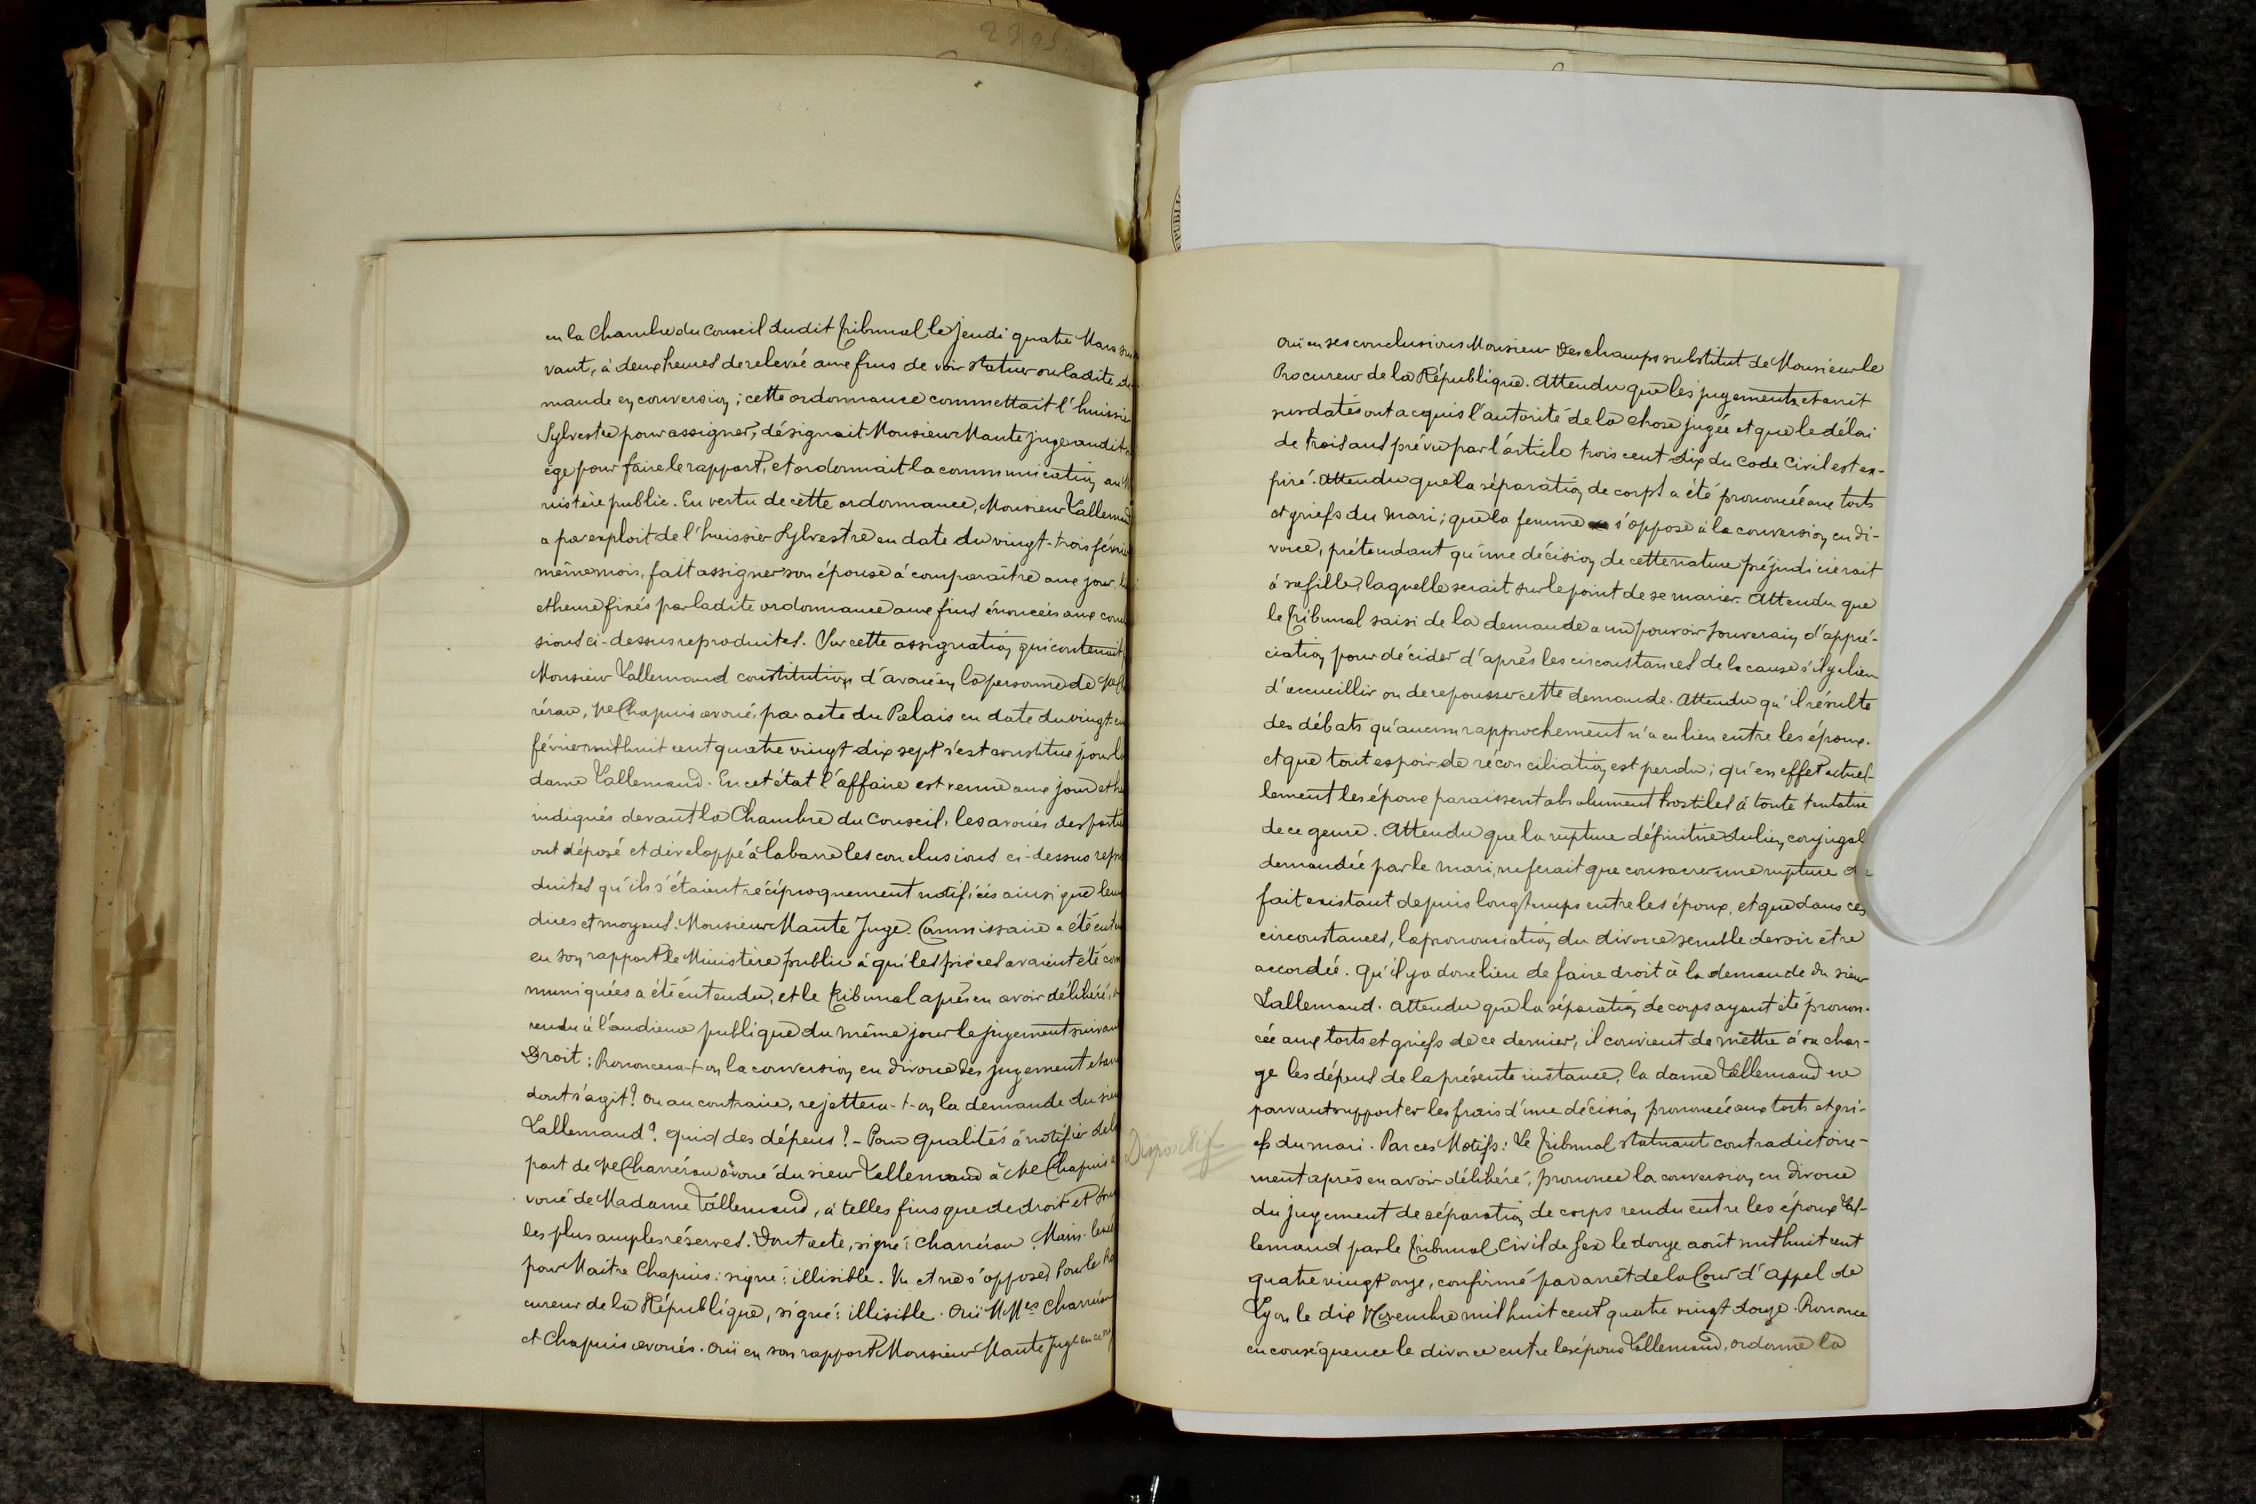 2395.
en la Chambre du Conseil dudit tribunal le jeudi quatre Mars sui
vant, à deux heures de relevée aux fins de voir statuer sur ladite de
mande en conversion ; cette ordonnance commettait l'huissier
Sylvestre pour assigner, désignait Monsieur Mante juge audit
ège pour faire le rapport, et ordonnait la communication au Mi
nistère public. En vertu de cette ordonnance, Monsieur Lallemand
a par exploit de l'huissier Sylvestre en date du vingt-trois février
même mois, fait assigner son épouse à comparaître aux jour, li
et heure fixés par ladite ordonnance aux fins énoncées aux conclu
sions ci-dessus reproduites. Sur cette assignation qui contenait
Monsieur Lallemand constitution d'avoué en la personne de Me Char
rérau, Me Chapuis avoué, par acte du Palais en date du vingt
février mil huit cent quatre vingt dix sept s'est constitué pour la
dame Lallemand. En cet état l'affaire est venue aux jour et he
indiqués devant la Chambre du Conseil, les avoués des parties
ont déposé et développé à la barre les conclusions ci-dessus repro
duites qu'ils s'étaient réciproquement notifiées ainsi que leurs
dires et moyens. Monsieur Mante Juge-Commissaire a été entendu
en son rapport le Ministère public à qui les pièces avaient été com
muniquées a été entendu, et le tribunal après en avoir délibéré, a
rendu à l'audience publique du même jour le jugement suivant
Droit : Prononcera-t-on la conversion en divorce des jugement et arrêt
dont s'agit ? Ou au contraire, rejettera-t-on la demande du sieur
Lallemand ? Quid des dépens ? - Pour qualités à notifier de la
part de Me Charrérau avoué du sieur Lallemand à Me Chapuis a
voué de Madame Lallemand, à telles fins que de droit et sous
les plus amples réserves. Dont acte, signé : Charrérau. Main-levée
pour Maitre Chapuis : signé : illisible. Vu et ne s'oppose, Pour le Pro
cureur de la République, signé : illisible. Ouï MMes Charrérau
et Chapuis avoués. Ouï en son rapport Monsieur Mante Juge en ce
Ouï en ses conclusions Monsieur Deschamps substitut de Monsieur le
Procureur de la République. Attendu que les jugements et arrêt
susdatés ont acquis l'autorité de la chose jugée et que le délai
de trois ans prévu par l'article trois cent dix du Code Civil est ex-
piré. Attendu que la séparation de corps a été prononcée aux torts
et griefs du mari ; que la femme s'oppose à la conversion en di-
vorce, prétendant qu'une décision de cette nature préjudicierait
à sa fille, laquelle serait sur le point de se marier. Attendu que
le tribunal saisi de la demande a un pouvoir souverain d'appré-
ciation pour décider d'après les circonstances de la cause s'il y a lieu
d'accueillir ou de repousser cette demande. Attendu qu'il résulte
des débats qu'aucun rapprochement n'a eu lieu entre les époux.
et que tout espoir de réconciliation est perdu ; qu'en effet actuel-
lement les époux paraissent absolument hostiles à toute tentative
de ce genre. Attendu que la rupture définitive du lien conjugal
demandée par le mari, ne ferait que consacrer une rupture de
fait existant depuis longtemps entre les époux, et que dans ces
circonstances, la prononciation du divorce semble devoir être
accordée. Qu'il y a donc lieu de faire droit à la demande du sieur
Lallemand. Attendu que la séparation de corps ayant été pronon-
cée aux torts et griefs de ce dernier, il convient de mettre à sa char-
ge les dépens de la présente instance, la dame Lallemand ne
pouvant supporter les frais d'une décision prononcée aux torts et gri-
efs du mari. Par ces Motifs : Le tribunal statuant contradictoire-
Dispositif
ment après en avoir délibéré, prononce la conversion en divorce
du jugement de séparation de corps rendu entre les époux Lal-
lemand par le tribunal Civil de Gex le douze août mil huit cent
quatre vingt onze, confirmé par arrêt de la Cour d'Appel de
Lyon le dix Novembre mil huit cent quatre vingt douze. Prononce
en conséquence le divorce entre les époux Lallemand, ordonne la